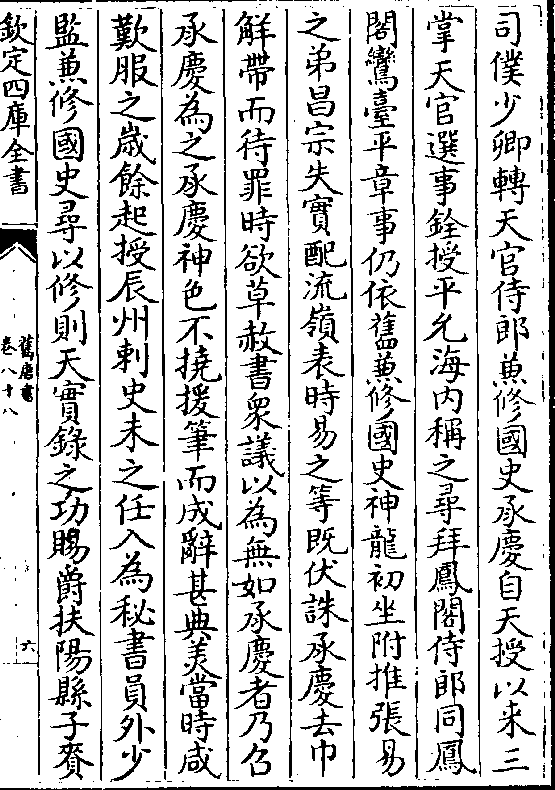 司僕少卿轉天官侍郎兼修國史承慶自天授以来三
掌天官選事銓授平允海内稱之尋拜鳳閣侍郎同鳳
閣鸞臺平章事仍依舊兼修國史神龍初坐附推張易
之弟昌宗失實配流嶺表時易之等既伏誅承慶去巾
解帶而待罪時欲草赦書衆議以為無如承慶者乃召
承慶為之承慶神色不撓援筆而成辭甚典美當時咸
歎服之歲餘起授辰州刺史未之任入為秘書員外少
監兼修國史尋以修則天實錄之功賜爵扶陽縣子賚
欽定四庫全書
舊唐書
卷八十八
六